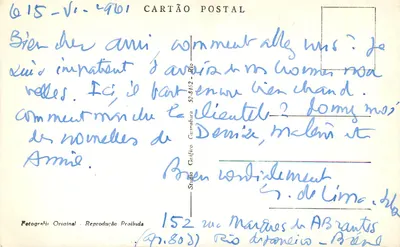 15-VI-1961
CARTÃO POSTAL
Bien cher ami, comment allez vous? Je
suis impatient d'avoir de vos bonnes nou
velles. Ici, il fait encore bien chaud.
comment marche la clientèle? Donnez moi
des nouvelles de Denise, et
Annie.
Bien cordialement
G. de Lima
Fotografia Original - Reprodução Proibida
152 rua Marquês de Abrantes
(ap. 802) Rio de Janeiro - Brésil